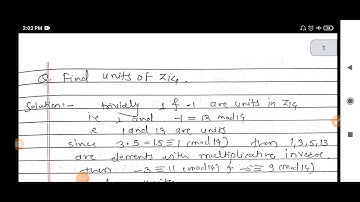 2:03 PM
1
Q. Find units of Z14.
Solution:- trivialy 1 & -1 are units in Z14
i.e and -1 = 13 mod 14
1 and 13 are units
since 3.5 = 15 ≡ 1 (mod 14) then 1,3,5,13
are elements with multiplicative inverse.
then -3 ≡ 11 (mod 14) & -5 ≡ 9 (mod 14)